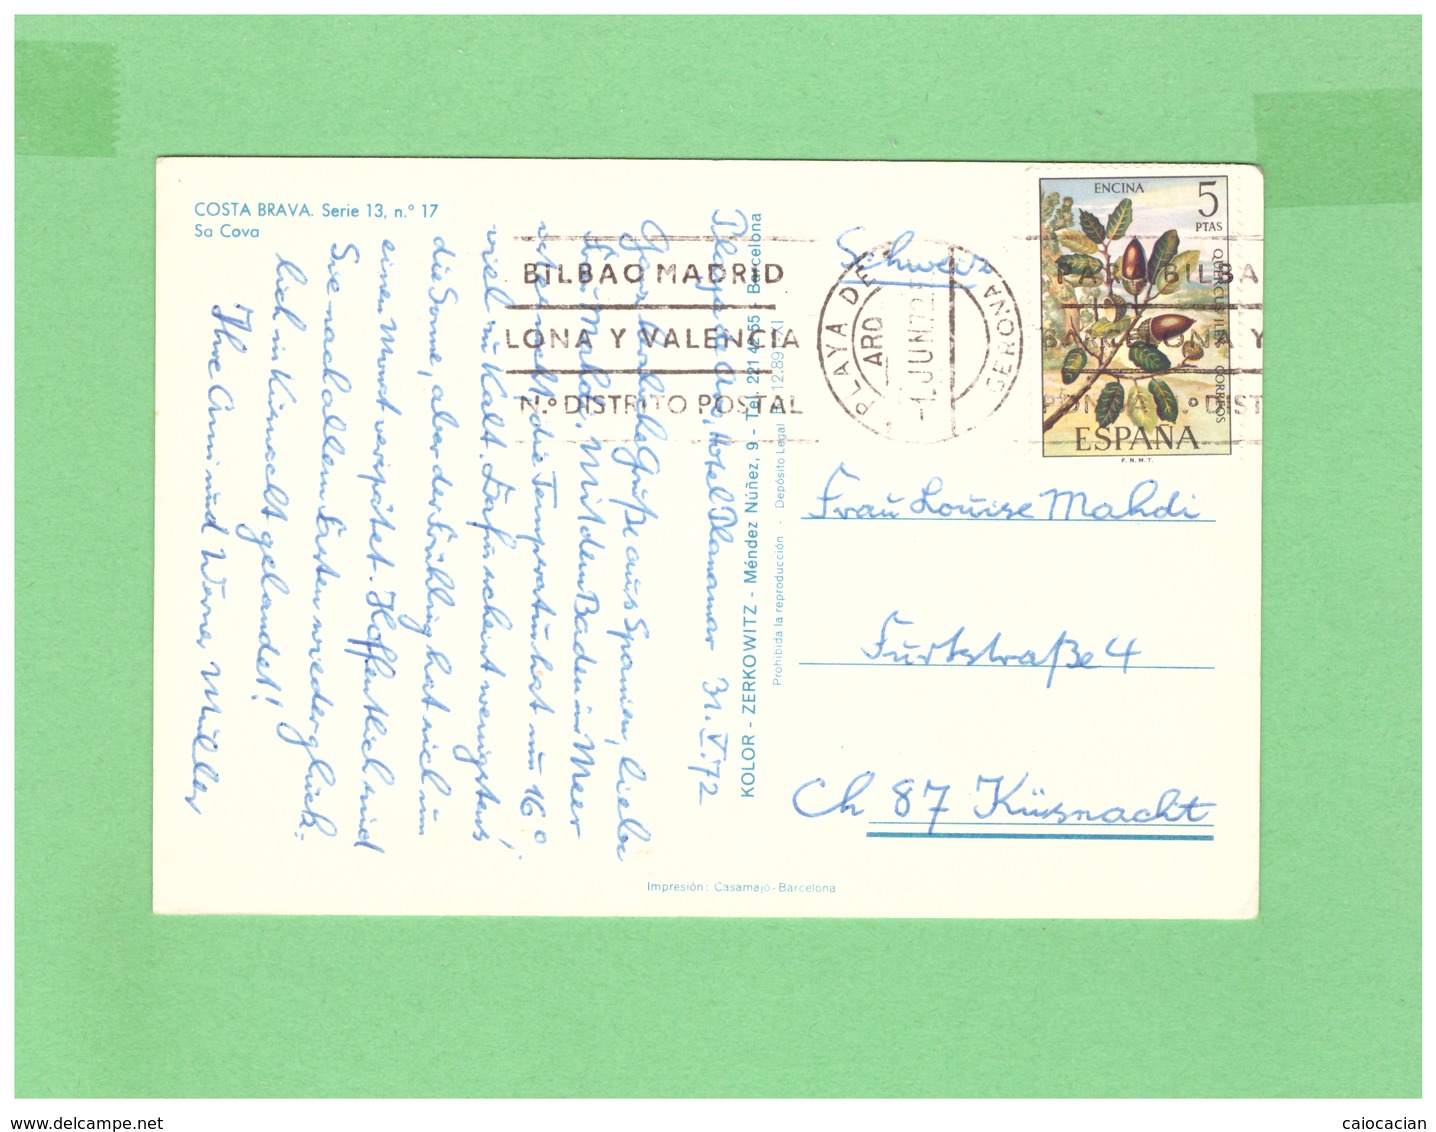 COSTA BRAVA. Serie 13, n.º 17
Sa Cova
Playa de Aro, Hotel Planamar 31.V.72
Ganz herzliche Grüße aus Spanien, liebe
Frau Mahdi. Mit dem Baden im Meer
ist es nicht, die Temperatur hat nur 16°
viel zu kalt. Dafür scheint wenigstens
die Sonne, aber der Frühling hat sich um
einen Monat verspätet. Hoffentlich sind
Sie nach allem Ersten wieder glück-
lich in Küsnacht gelandet!
Ihre Anni und Werner Müller
KOLOR - ZERKOWITZ - Méndez Núñez, 9 - Tel. 221 42 55 - Barcelona
Prohibida la reproducción - Depósito Legal 12.89 XI
Impresión: Casamajó-Barcelona
BILBAO MADRID
LONA Y VALENCIA
N.º DISTRITO POSTAL
PLAYA DE
ARO
-1. JUN 72
GERONA
PARA BILBA
BARCELONA Y
PONGA N.º DIST
ENCINA
5
PTAS
QUERCUS ILEX
CORREOS
ESPAÑA
F.N.M.T.
Schweiz
Frau Louise Mahdi
Furtstraße 4
Ch 87 Küsnacht
www.delcampe.net
caiocacian